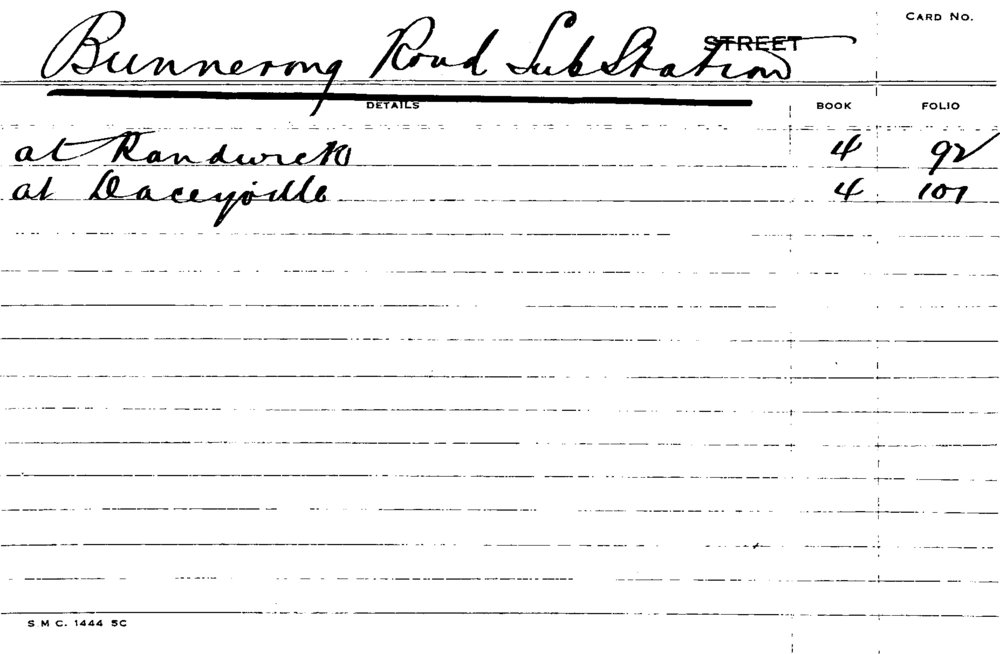 CARD NO.
Bunnerong Road Sub Station STREET
DETAILS BOOK FOLIO
at Randwick 4 92
at Daceyville 4 101
S M C. 1444 5C